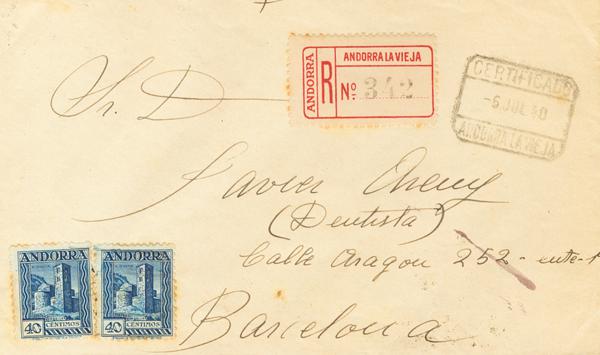 ANDORRA
R
ANDORRA LA VIEJA
Nº 342
CERTIFICADO
-6 JUL 40
ANDORRA LA VIEJA
Sr. D
Javier
(Dentista)
Calle Aragon 252 -
Barcelona
ANDORRA
40 CENTIMOS 40
ANDORRA
40 CENTIMOS 40